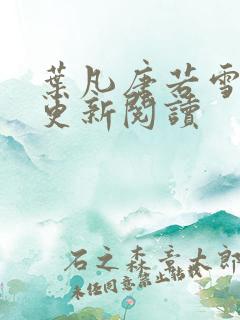 葉凡唐若雪
更新閱讀
石之森章太郎
未經同意禁止轉載